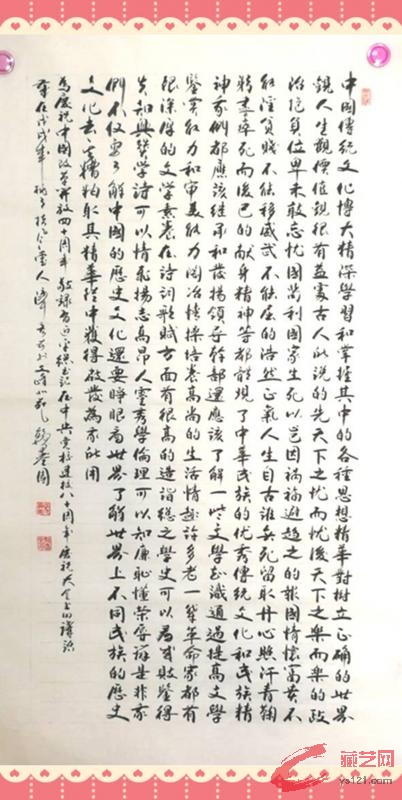 中國傳統文化博大精深學習和掌握其中的各種思想精華對樹立正確的世界
觀人生觀價值觀很有益處古人所說的先天下之忧而忧後天下之樂而樂的政
治抱負位卑未敢忘忧國苟利國家生死以豈因禍福避趨之的報國情懷富貴不
能淫貧賤不能移威武不能屈的浩然正氣人生自古誰無死留取丹心照汗青鞠
躬盡瘁死而後已的献身精神等都體現了中華民族的优秀傳統文化和民族精
神我們都應該继承和發揚領導幹部還應該了解一些文學知識通過提高文學
鑒賞能力和審美能力陶冶情操培養高尚的生活情趣許多老一輩革命家都有
很深厚的文學素養在詩詞歌賦方面有很高的造詣總之學史可以看成敗鑒得
失知興替學詩可以情飛揚志高昂人靈秀學倫理可以知廉耻懂榮辱辨是非我
們不仅要了解中國的歷史文化還要睁眼看世界了解世界上不同民族的歷史
文化去其糟粕取其精華從中獲得啟發為我所用
為慶祝中國改革開放四十周年 敬录習近平總書記在中央党校建校八十周年慶祝大會上的講話
歲在戊戌年
藏艺网
ys121.com